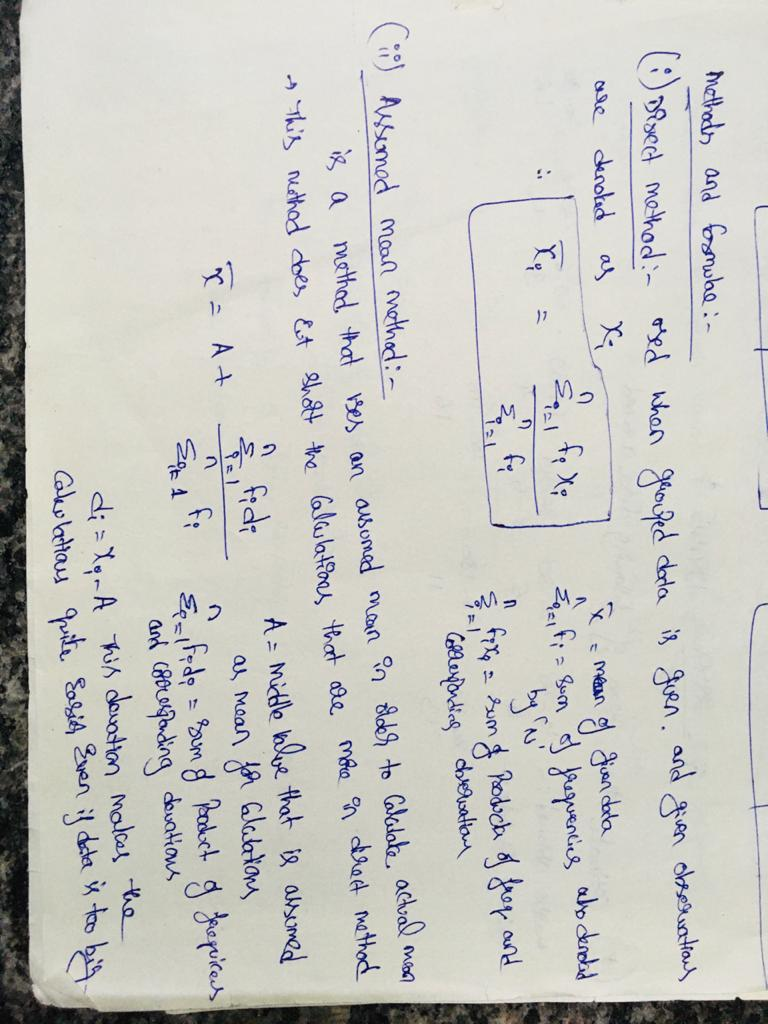 Methods and formulae:-
(i) Direct method:- used when grouped data is given. and given observations
are denoted as xi
∴ x̄i = Σⁿi=1 fi xi / Σⁿi=1 fi
x̄ = mean of given data
Σⁿi=1 fi = sum of frequencies also denoted
by 'N'
Σⁿi=1 fixi = sum of Products of freq. and
Corresponding observations
(ii) Assumed mean method:-
is a method that uses an assumed mean in order to Calculate actual mean
→ This method does cut short the Calculations that are more in direct method
x̄ = A + Σⁿi=1 fidi / Σⁿi=1 fi
A = Middle value that is assumed
as mean for Calculations
Σⁿi=1 fidi = sum of Product of frequencies
and corresponding deviations
di = xi - A This deviation makes the
Calculations quite easier even if data is too big.